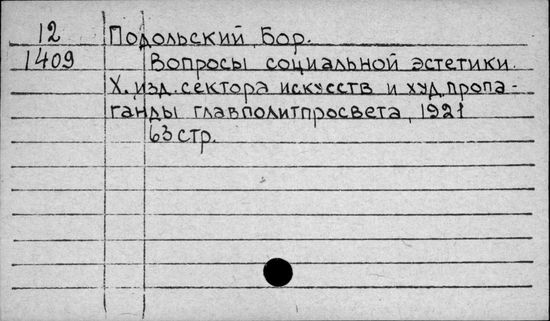 12 Подольский, Бор.
1409 Вопросы социальной эстетики.
Х. изд. сектора искусств и худ. пропа-
ганды главполитпросвета, 1921
63 стр.